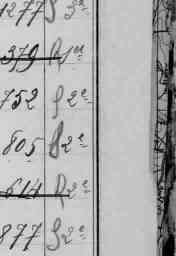 1277 S 3e
379 R 1re
752 S 2e
805 S 2e
614 R 2e
877 S 2e